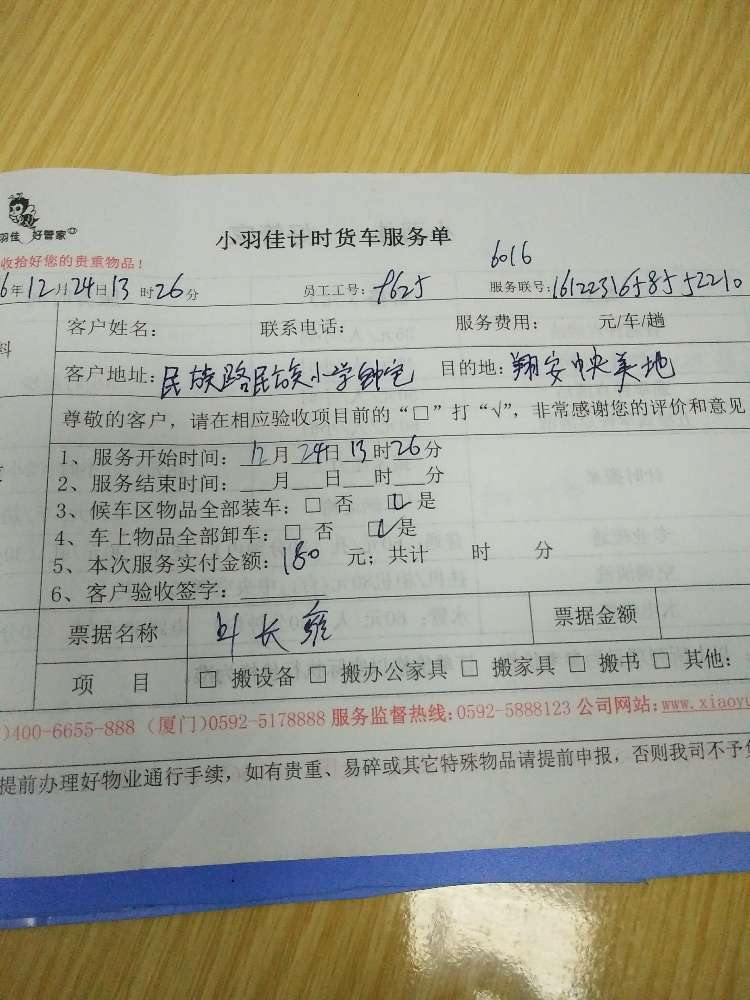 羽佳 好管家
小羽佳计时货车服务单
收拾好您的贵重物品！
6016
6年12月24日13时26分 员工工号：9625 服务联号：1612231658552210
料
客户姓名： 联系电话： 服务费用： 元/车/趟
客户地址：民族路民族小学钟宅 目的地：翔安中央美地
尊敬的客户，请在相应验收项目前的“□”打“√”，非常感谢您的评价和意见
1、服务开始时间：12月24日13时26分
2、服务结束时间：___月___日___时___分
3、候车区物品全部装车：□ 否 ☑是
4、车上物品全部卸车：□ 否 ☑是
5、本次服务实付金额：180元；共计 时 分
6、客户验收签字：
票据名称 票据金额
项 目 □ 搬设备 □ 搬办公家具 □ 搬家具 □ 搬书 □ 其他：
)400-6655-888（厦门）0592-5178888 服务监督热线：0592-5888123 公司网站：www.xiaoyu
提前办理好物业通行手续，如有贵重、易碎或其它特殊物品请提前申报，否则我司不予